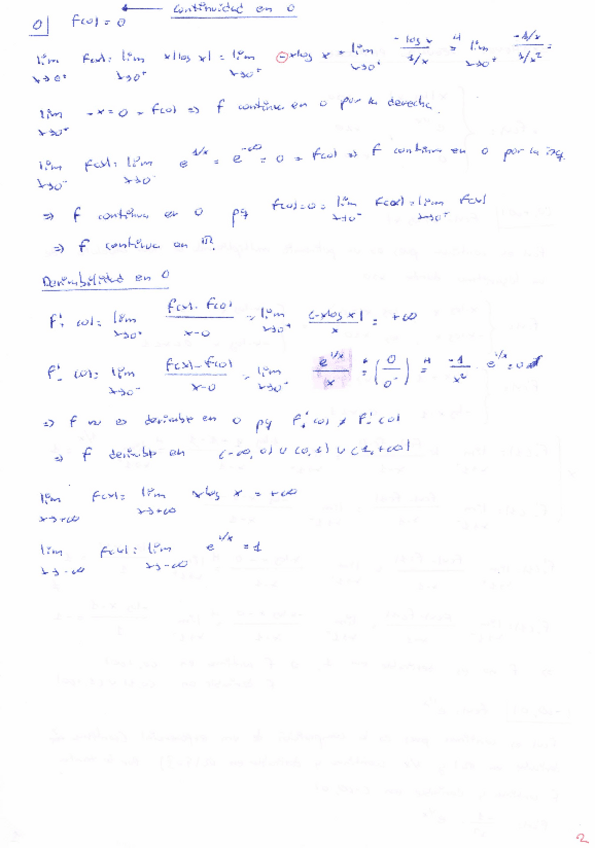 0 f(0) = 0 ← Continuidad en 0
lim x→0+ f(x) = lim x→0+ x|log x| = lim x→0+ -x log x = lim x→0+ -log x / 1/x =(H) lim x→0+ -1/x / -1/x² =
lim x→0+ -x = 0 = f(0) ⇒ f continua en 0 por la derecha.
lim x→0- f(x) = lim x→0- e^{1/x} = e^{-∞} = 0 = f(0) ⇒ f continua en 0 por la izq.
⇒ f continua en 0 pq f(0) = 0 = lim x→0- f(x) = lim x→0+ f(x)
⇒ f continua en ℝ.
Derivabilidad en 0
f'+ (0) = lim x→0+ f(x) - f(0) / x-0 = lim x→0+ (-x log x) / x = +∞
f'- (0) = lim x→0- f(x) - f(0) / x-0 = lim x→0- e^{1/x} / x = (0 / 0-) =(H) -1 / x² · e^{1/x} = 0
⇒ f no es derivable en 0 pq f'+ (0) ≠ f'- (0)
⇒ f derivable en (-∞, 0) ∪ (0, 1) ∪ (1, +∞)
lim x→+∞ f(x) = lim x→+∞ x log x = +∞
lim x→-∞ f(x) = lim x→-∞ e^{1/x} = 1
2